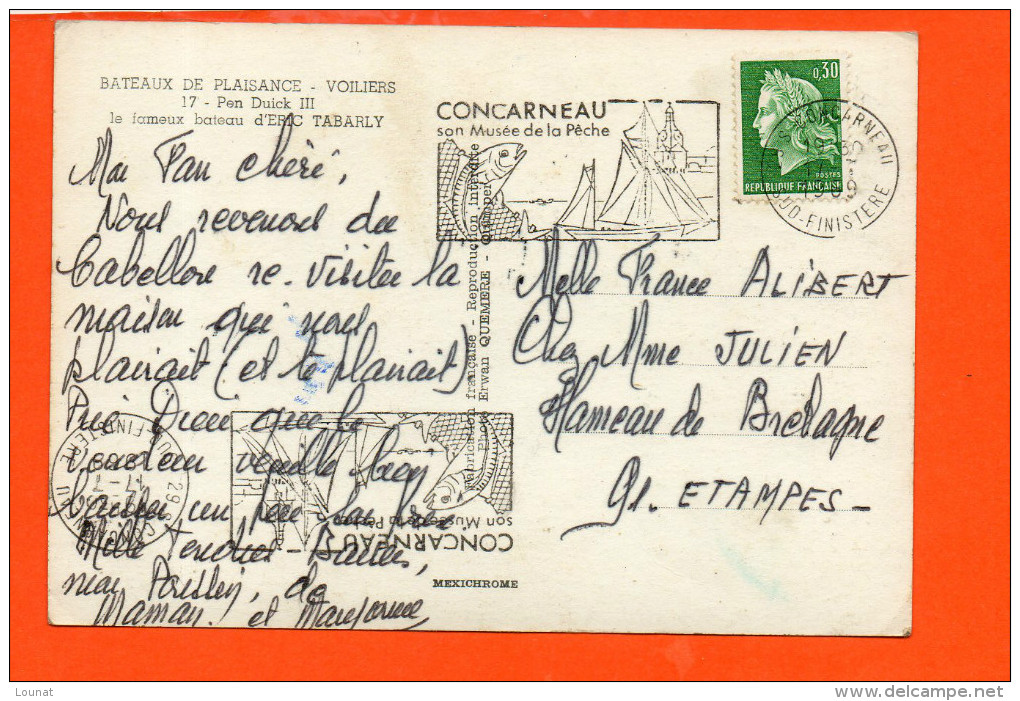 BATEAUX DE PLAISANCE - VOILIERS
17 - Pen Duick III
le fameux bateau d'ERIC TABARLY
Ma Fan chérie,
Nous revenons du
Cabellou re-visiter la
maison qui nous
plairait (et te plairait)
Prie Dieu que le
vendeur veuille bien
baisser un peu son prix.
Mille Tendres Baisers,
mon
Maman. et
CONCARNEAU
son Musée de la Pêche
0,30
POSTES
REPUBLIQUE FRANÇAISE
29 S CONCARNEAU
SUD-FINISTERE
Fabrication française - Reproduction interdite
Photo Erwan QUEMERE - Quimper
Melle France ALIBERT
Chez Mme JULIEN
Hameau de Bretagne
91. ETAMPES -
CONCARNEAU
son Musée de la Pêche
29 S CONCARNEAU
SUD-FINISTERE
MEXICHROME
Lounat
www.delcampe.net